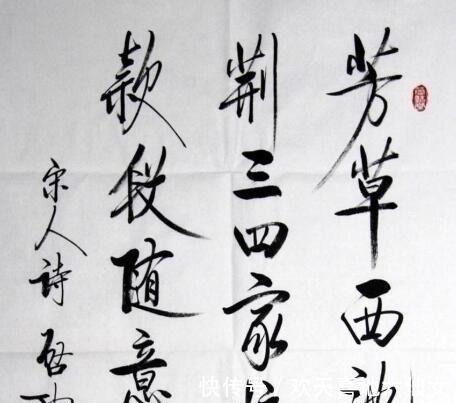 芳草西
荆三四家
款段随意
宋人詩 启
快传号